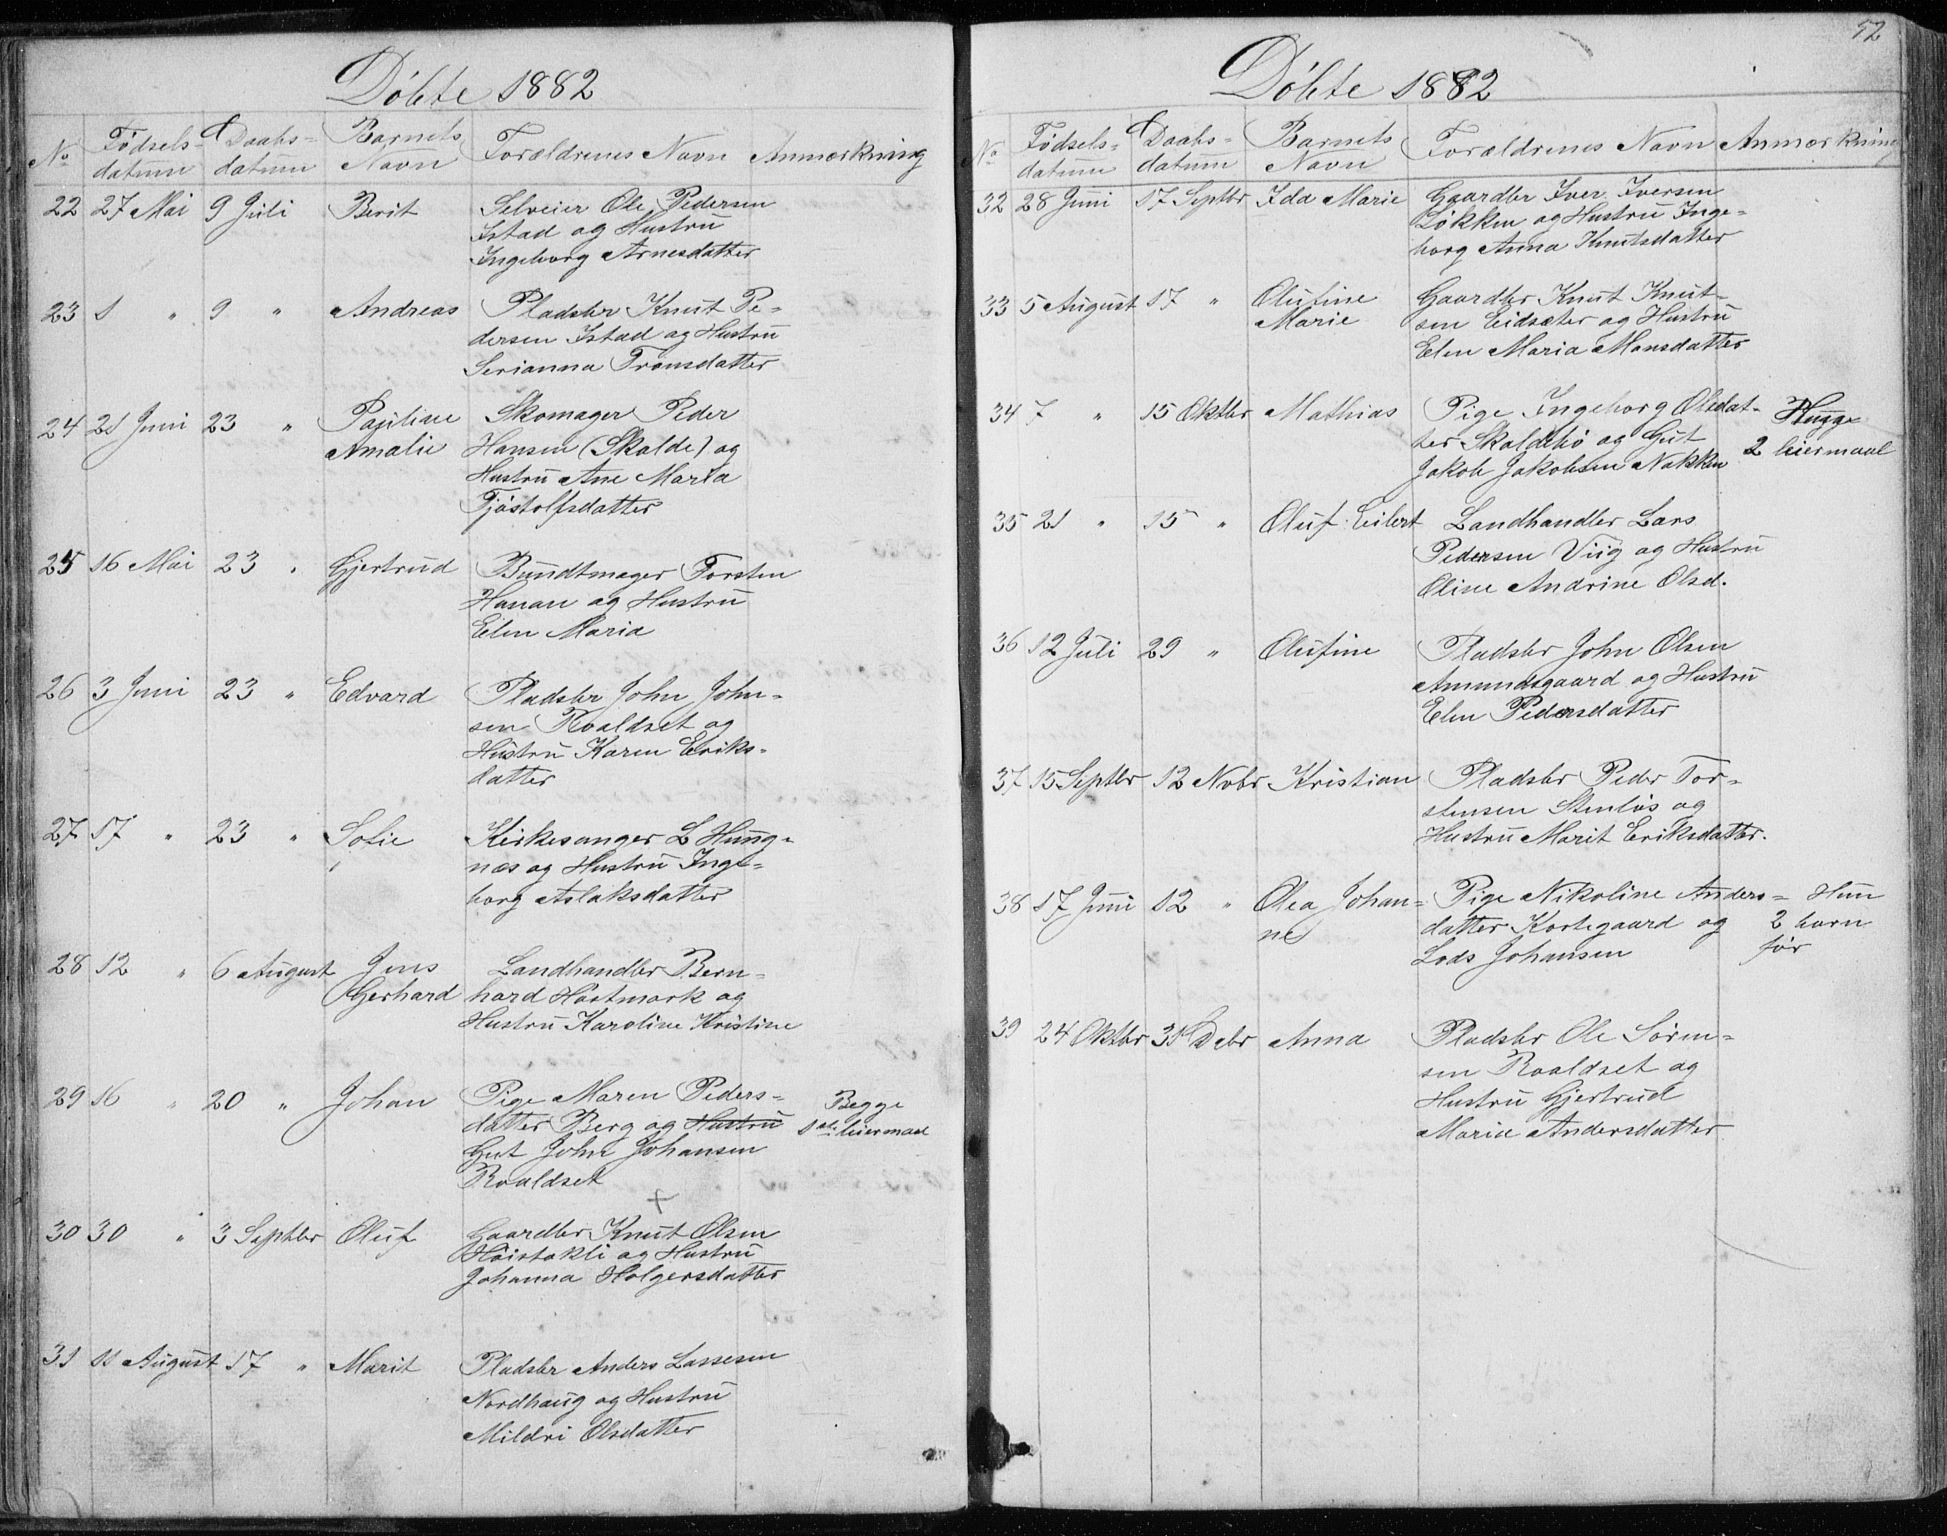 Döbte 1882
No Fødsels= datum Daabs= datum Barnets Navn Forældrenes Navn Anmærkning
22 27 Mai 9 Juli Berit Selveier Ole Pedersen
Istad og Hustru
Ingeborg Arnesdatter
23 1 " 9 " Andreas Pladsbr Knut Pe=
dersen Istad og Hustru
Serianna Tronsdatter
24 21 Juni 23 " Pauline Skomager Peder
Amalie Hansen (Skalde) og
Hustru Ane Maria
Tjøstolfsdatter
25 16 Mai 23 " Gjertrud Bundtmager Torsten
Hanan og Hustru
Elen Maria
26 3 Juni 23 " Edvard Pladsbr John John=
sen Roaldset og
Hustru Karen Eriks=
datter
27 17 " 23 " Sofie Kirkesanger L Haug=
næs og Hustru Inge=
borg Aslaksdatter
28 12 " 6 August Jens Landhandler Bern=
Gerhard hard Hartmark og
Hustru Karoline Kristine
29 16 " 20 " Johan Pige Maren Peders= Begge
datter Berg og Hustru 1ste leiermaal
Gut John Johansen
Roaldset
+
30 30 " 3 Septbr Oluf Gaardbr Knut Olsen
Höistakli og Hustru
Johanna Holgersdatter
31 11 August 17 " Marit Pladsbr Anders Lassesen
Nordhaug og Hustru
Mildri Olsdatter
52
Döbte 1882
No Fødsels= datum Daabs= datum Barnets Navn Forældrenes Navn Anmærkning
32 28 Juni 17 Septbr Ida Marie Gaardbr Iver Iversen
Løkken og Hustru Inge=
borg Anna Knutsdatter
33 5 August 17 " Olufine Gaardbr Knut Knut=
Marie sen Eidsæter og Hustru
Elen Maria Monsdatter
34 7 " 15 Oktbr Mathias Pige Ingeborg Olsdat=
ter Skaldebø og Gut 2 leiermaal
Jakob Jakobsen Nakken
35 21 " 15 " Oluf Eilert Landhandler Lars
Pedersen Viig og Hustru
Oline Andrine Olsd.
36 12 Juli 29 " Olufine Pladsbr John Olsen
Amundsgaard og Hustru
Elen Pedersdatter
37 15 Septbr 12 Nvbr Kristian Pladsbr Peder Tor=
stensen Stenløs og
Hustru Marit Eriksdatter.
38 17 Juni 12 " Olea Johan= Pige Nikoline Anders= Hun
ne datter Kortgaard og 2 barn
Lods Johansen før
39 24 Oktbr 31 Debr Anna Pladsbr Ole Sörn=
sen Roaldset og
Hustru Gjertrud
Maria Andersdatter